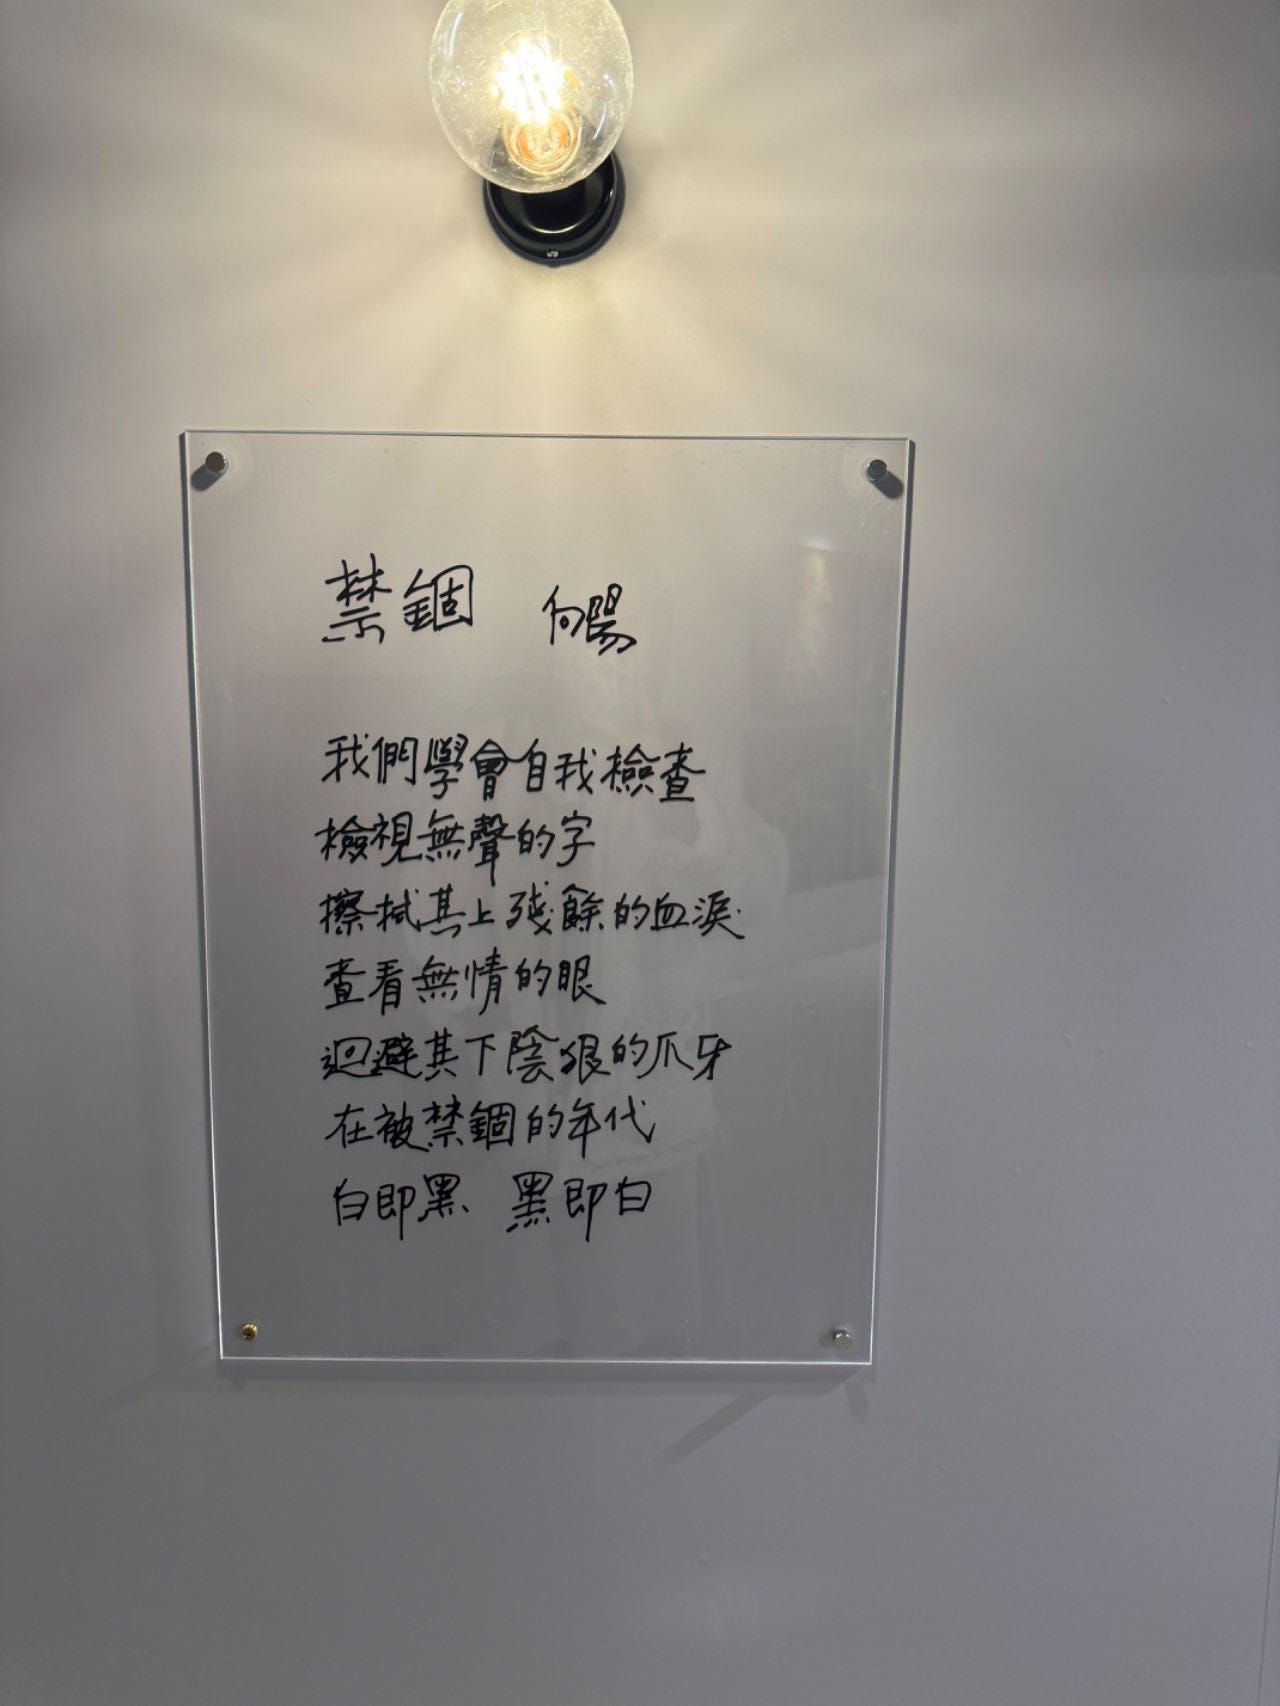 禁錮 向陽
我們學會自我檢查
檢視無聲的字
擦拭其上殘餘的血淚
查看無情的眼
迴避其下陰狠的爪牙
在被禁錮的年代
白即黑、黑即白